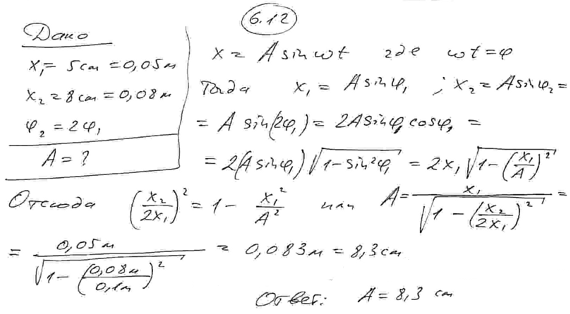 6.12
Дано
x₁ = 5 см = 0,05 м
x₂ = 8 см = 0,08 м
φ₂ = 2φ₁
A = ?
x = A sin ωt где ωt = φ
Тогда x₁ = A sin φ₁ ; x₂ = A sin φ₂ =
= A sin(2φ₁) = 2A sin φ₁ cos φ₁ =
= 2(A sin φ₁) √(1 - sin²φ₁) = 2x₁ √(1 - (x₁/A)²)
Отсюда (x₂/2x₁)² = 1 - x₁²/A² или A = x₁/√(1 - (x₂/2x₁)²) =
= 0,05 м/√(1 - (0,08 м/0,1 м)²) = 0,083 м = 8,3 см
Ответ: A = 8,3 см